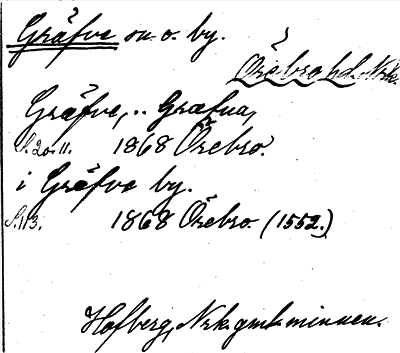 Gräfve sn. o. by.
Örebro hd. Nrk.
Gräfve, .. Græfua,
S. 20. 11. 1868 Örebro.
i Gräfve by.
S. 113. 1868 Örebro. (1552.)
Hofberg, Nrk. gml. minnen.